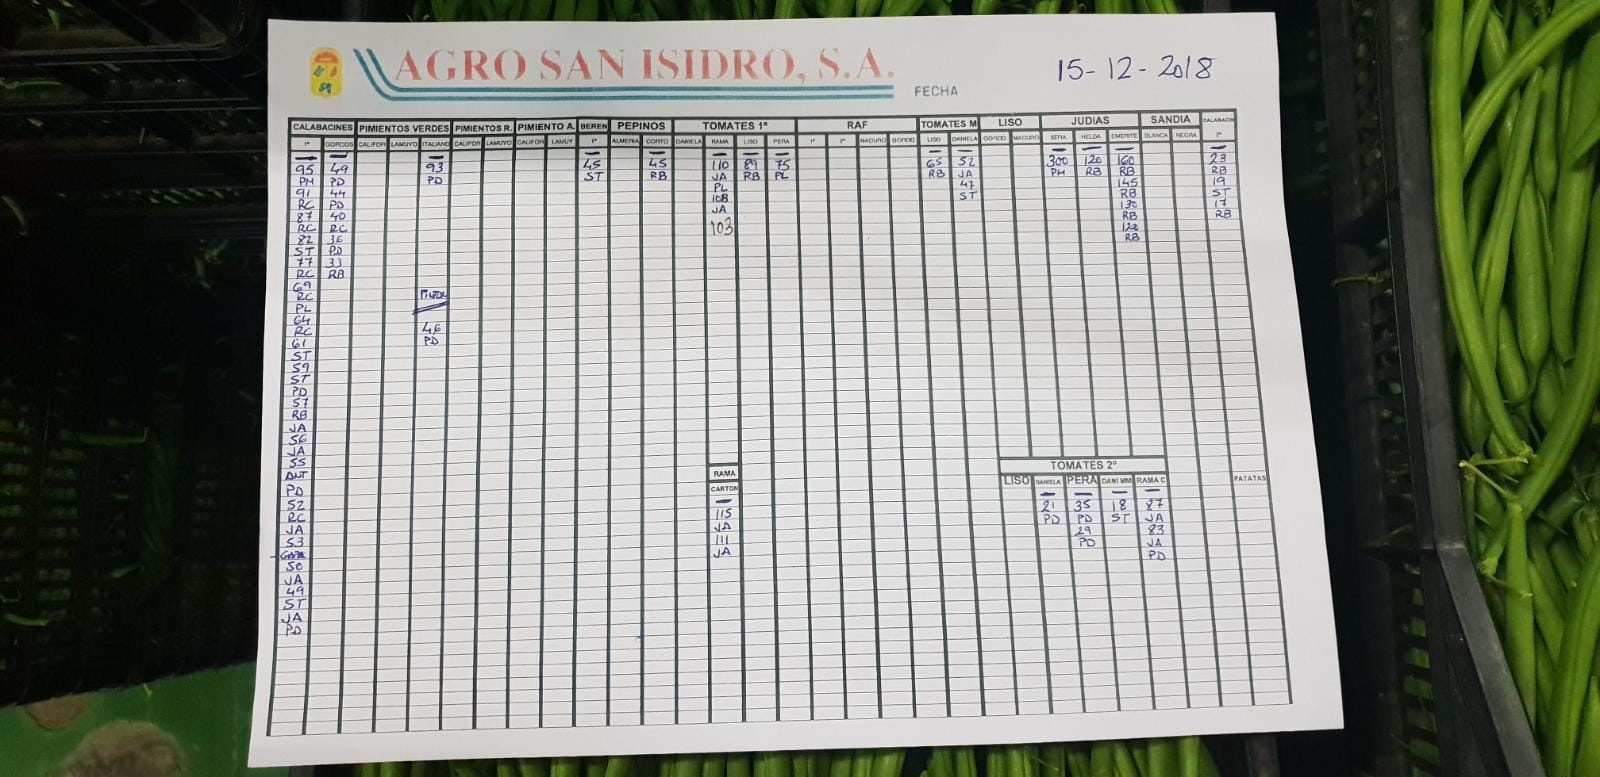 AGRO SAN ISIDRO, S.A.
FECHA 15-12-2018
CALABACINES PIMIENTOS VERDES PIMIENTOS R. PIMIENTO A. BEREN PEPINOS TOMATES 1ª RAF TOMATES M LISO JUDIAS SANDIA CALABACIN
1ª GORDOS CALIFOR LAMUYO ITALIANO CALIFOR LAMUYO CALIFOR LAMUY 1ª ALMERIA CORTO DANIELA RAMA LISO PERA 1ª 2ª MADURO GORDO LISO DANIELA GORDO MADURO XERA HELDA EMERITE BLANCA NEGRA 2ª
95 49 93 45 45 110 89 75 65 52 300 120 160 23
PH PD PD ST RB JA RB PL RB JA PH RB RB RB
91 44 PL 47 145 19
RC PD 108 ST RB ST
87 40 JA 130 17
RC RC 103 RB RB
82 36 120
ST PD RB
77 33
RC RB
69
RC PINTON
PL
64
RC 46
61 PD
ST
59
ST
PD
57
RB
JA
56
JA
55 TOMATES 2º
RAMA LISO DANIELA PERA DANI MM RAMA C PATATAS
PD CARTON
52 21 35 18 87
RC 115 PD PD ST JA
JA JA 29 83
53 111 PD JA
JA PD
50
JA
49
ST
JA
PD